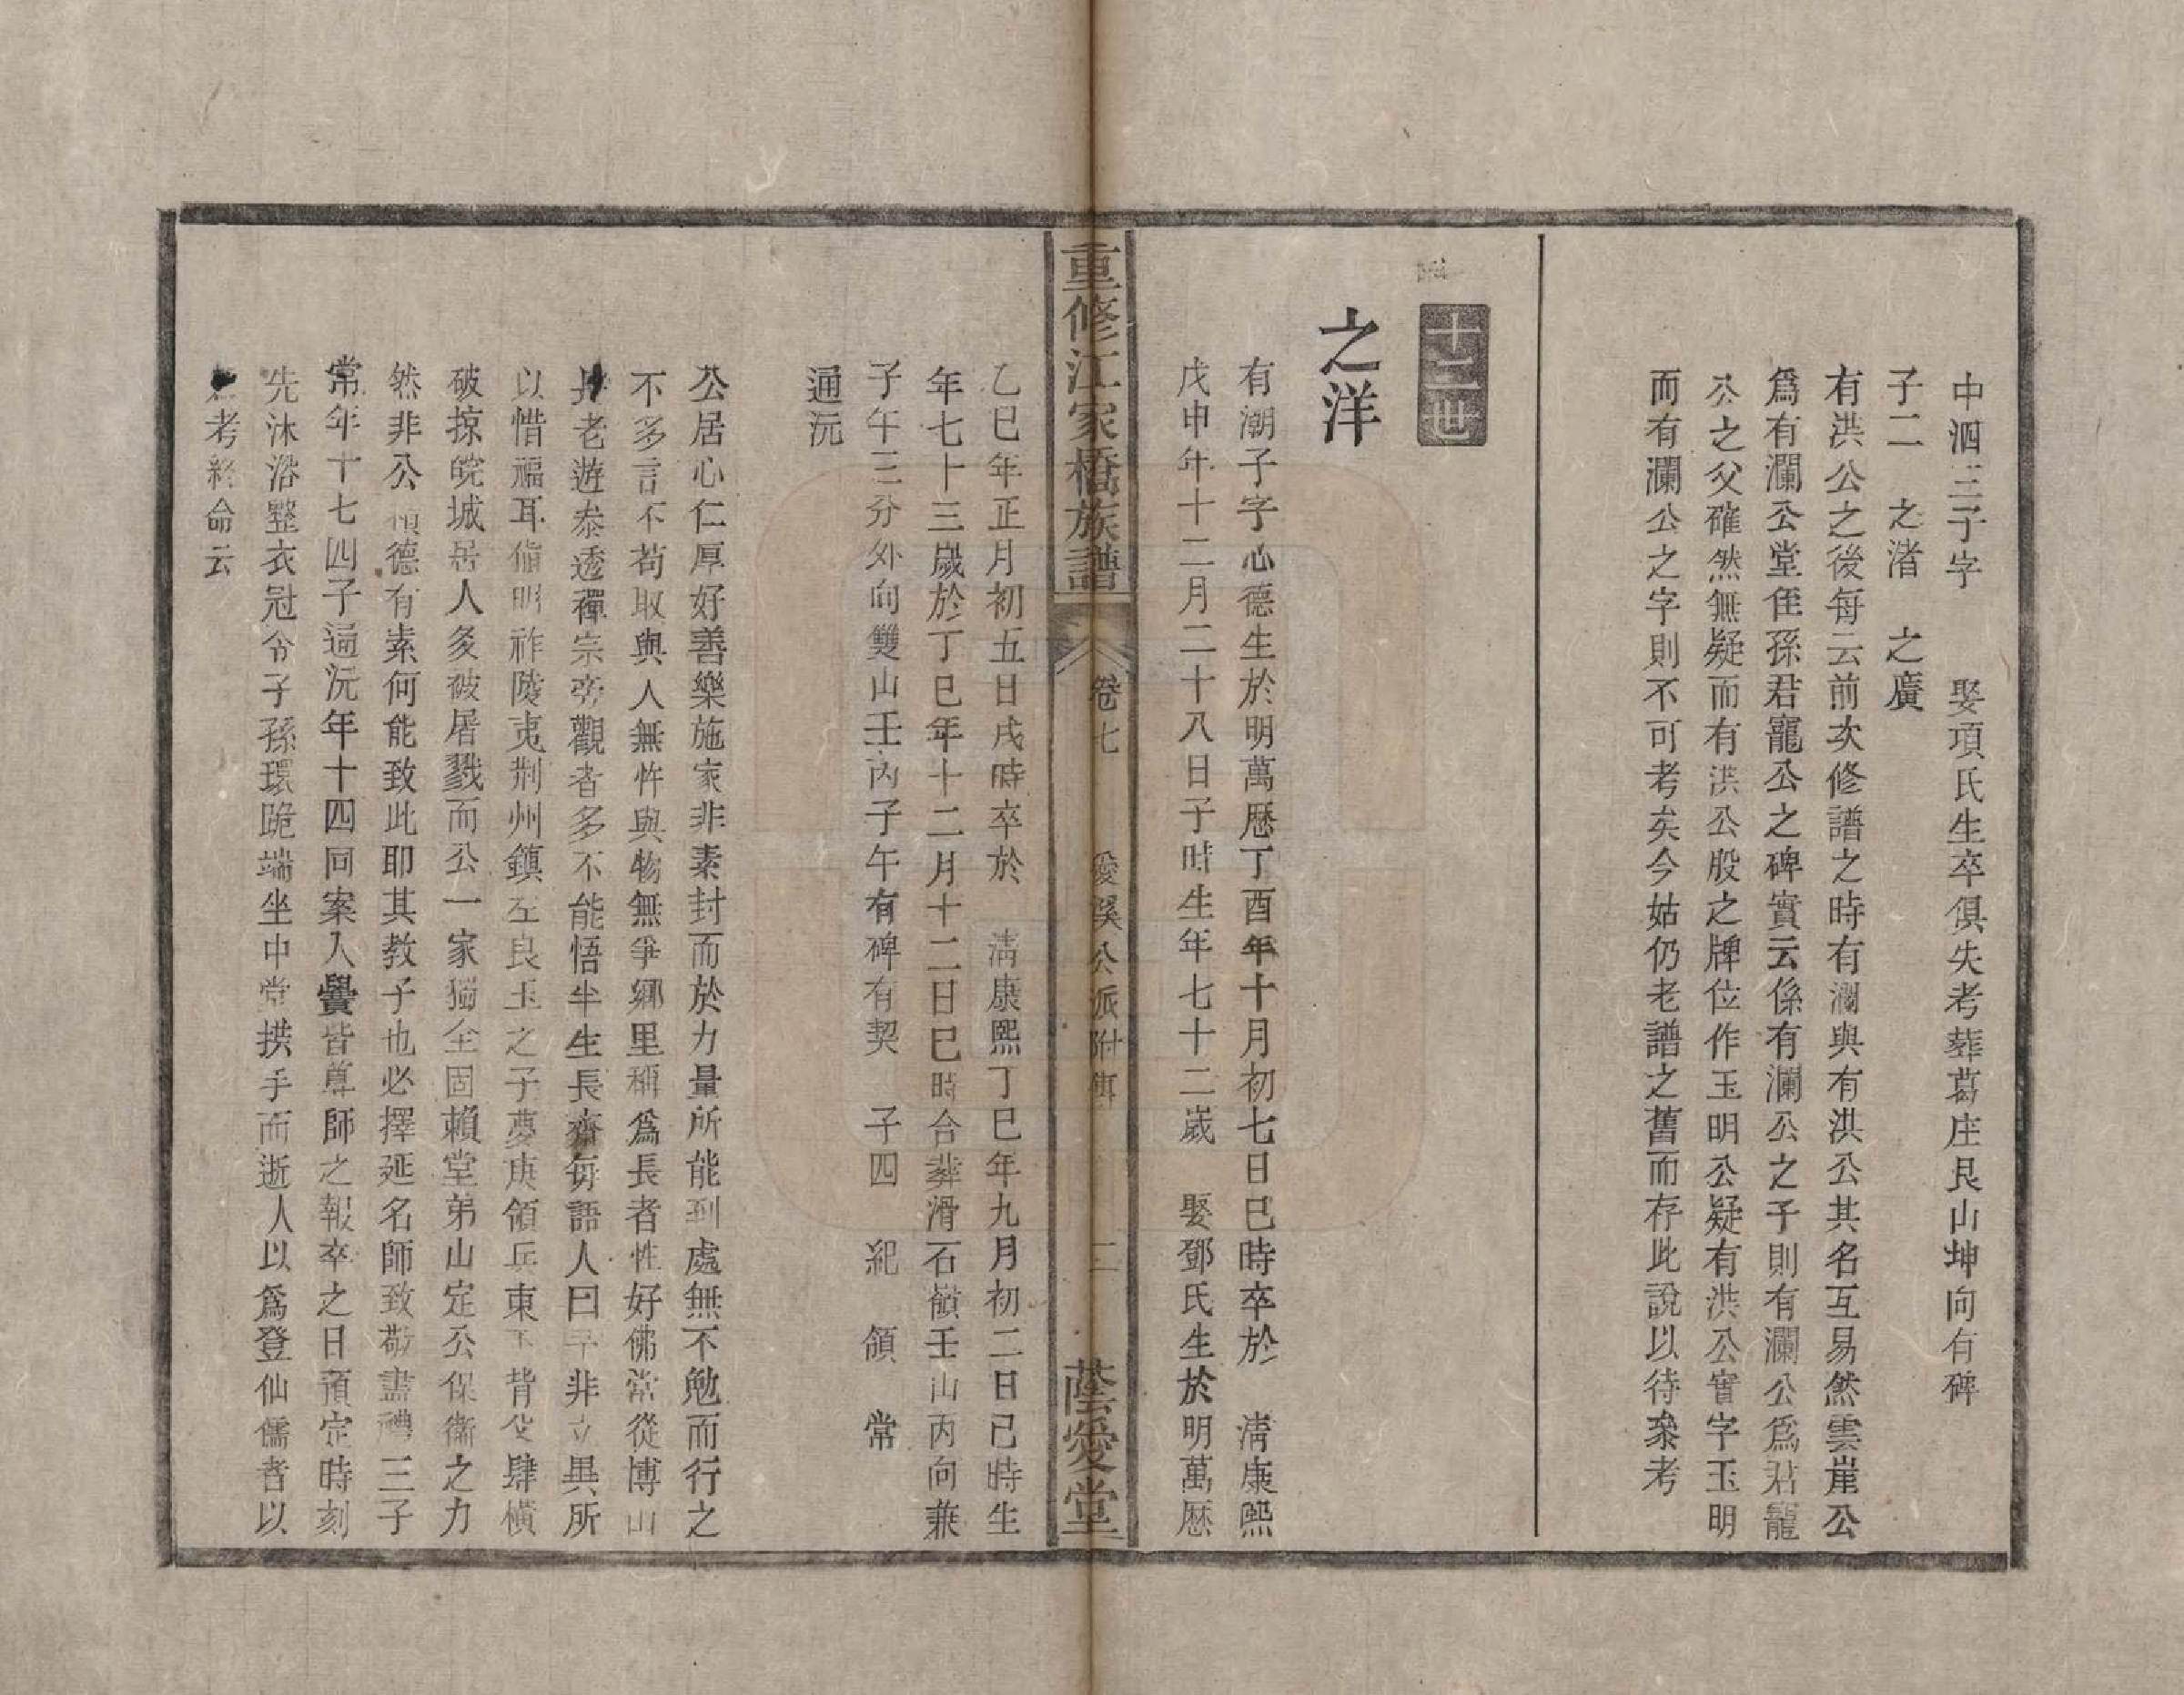 中泗三子字　　娶項氏生卒俱失考葬葛庄艮山坤向有碑
子二　之渚　之廣
有洪公之後每云前次修譜之時有瀾與有洪公其名互易然雲崖公
爲有瀾公堂侄孫君寵公之碑實云係有瀾公之子則有瀾公爲君寵
公之父確然無疑而有洪公股之牌位作玉明公疑有洪公實字玉明
而有瀾公之字則不可考矣今姑仍老譜之舊而存此說以待衆考
十二世
之洋
有潮子字心德生於明萬歷丁酉年十月初七日巳時卒於　淸康熙
戊申年十二月二十八日子時生年七十二歲　娶鄧氏生於明萬歷
重修江家橋族譜　卷七　愛溪公派附傳　二　蔭愛堂
乙巳年正月初五日戌時卒於　淸康熙丁巳年九月初二日巳時生
年七十三歲於丁巳年十二月十二日巳時合葬滑石嶺壬山丙向兼
子午三分外向雙山壬丙子午有碑有契　子四　紀　領　常
通沅
公居心仁厚好善樂施家非素封而於力量所能到處無不勉而行之
不多言不苟取與人無忤與物無爭鄉里稱爲長者性好佛常從博山
長老遊叅透禪宗旁觀者多不能悟半生長齋每語人曰予非立異所
以惜福耳偹明祚陵夷荆州鎮左良玉之子夢庚領兵東下背叏肆橫
破掠皖城居人多被屠戮而公一家獨全固賴堂弟山定公保衞之力
然非公積德有素何能致此耶其教子也必擇延名師致敬盡禮三子
常年十七四子通沅年十四同案入黌皆尊師之報卒之日預定時刻
先沐浴整衣冠令子孫環跪端坐中堂拱手而逝人以爲登仙儒者以
考終命云